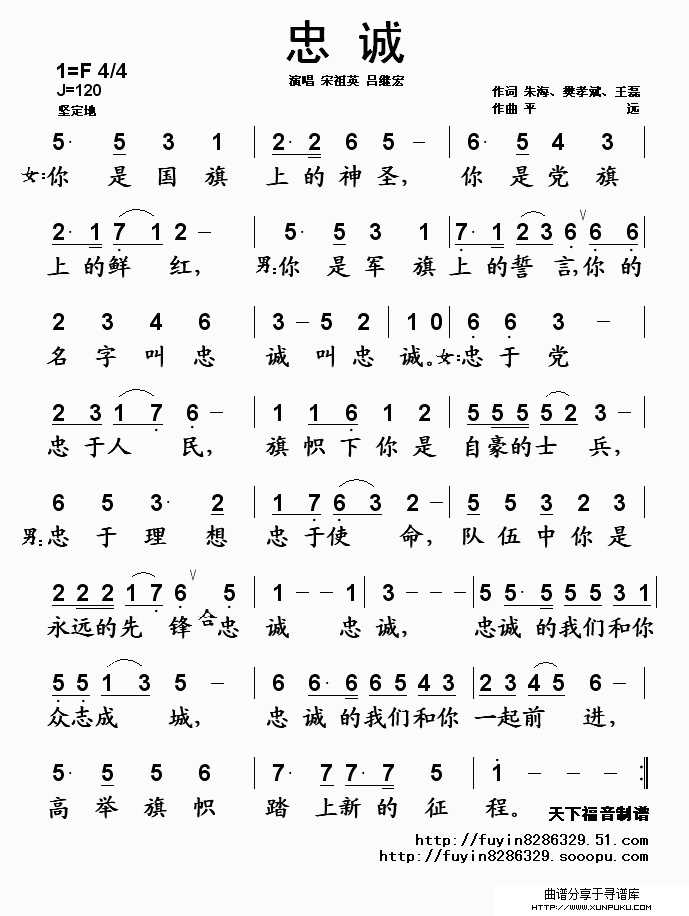 忠 诚
1=F 4/4
J=120
坚定地
演唱 宋祖英 吕继宏
作词 朱海、樊孝斌、王磊
作曲 平 远
5· 5 3 1 | 2· 2 6 5 – | 6· 5 4 3 |
女:你 是 国 旗 上 的 神 圣, 你 是 党 旗
2· 1 7 1 2 – | 5· 5 3 1 | 7· 1 2 3 6 V 6 6 |
上 的 鲜 红, 男:你 是 军 旗 上 的 誓 言,你 的
2 3 4 6 | 3 – 5 2 | 1 0 | 6 6 3 – |
名 字 叫 忠 诚 叫 忠 诚。女:忠 于 党
2 3 1 7 6 – | 1 1 6 1 2 | 5 5 5 5 2 3 |
忠 于 人 民, 旗 帜 下 你 是 自 豪 的 士 兵,
6 5 3· 2 | 1 7 6 3 2 – | 5 5 3 2 3 |
男:忠 于 理 想 忠 于 使 命, 队 伍 中 你 是
2 2 2 1 7 6 V 5 | 1 – – 1 | 3 – – – | 5 5· 5 5 5 3 1 |
永 远 的 先 锋 合 忠 诚 忠 诚, 忠 诚 的 我 们 和 你
5 5 1 3 5 – | 6 6· 6 6 5 4 3 | 2 3 4 5 6 – |
众 志 成 城, 忠 诚 的 我 们 和 你 一 起 前 进,
5· 5 5 6 | 7· 7 7· 7 5 | 1 – – – :||
高 举 旗 帜 踏 上 新 的 征 程。
天下福音制谱
http://fuyin8286329.51.com
http://fuyin8286329.sooopu.com
曲谱分享于寻谱库
HTTP://WWW.XUNPUKU.COM